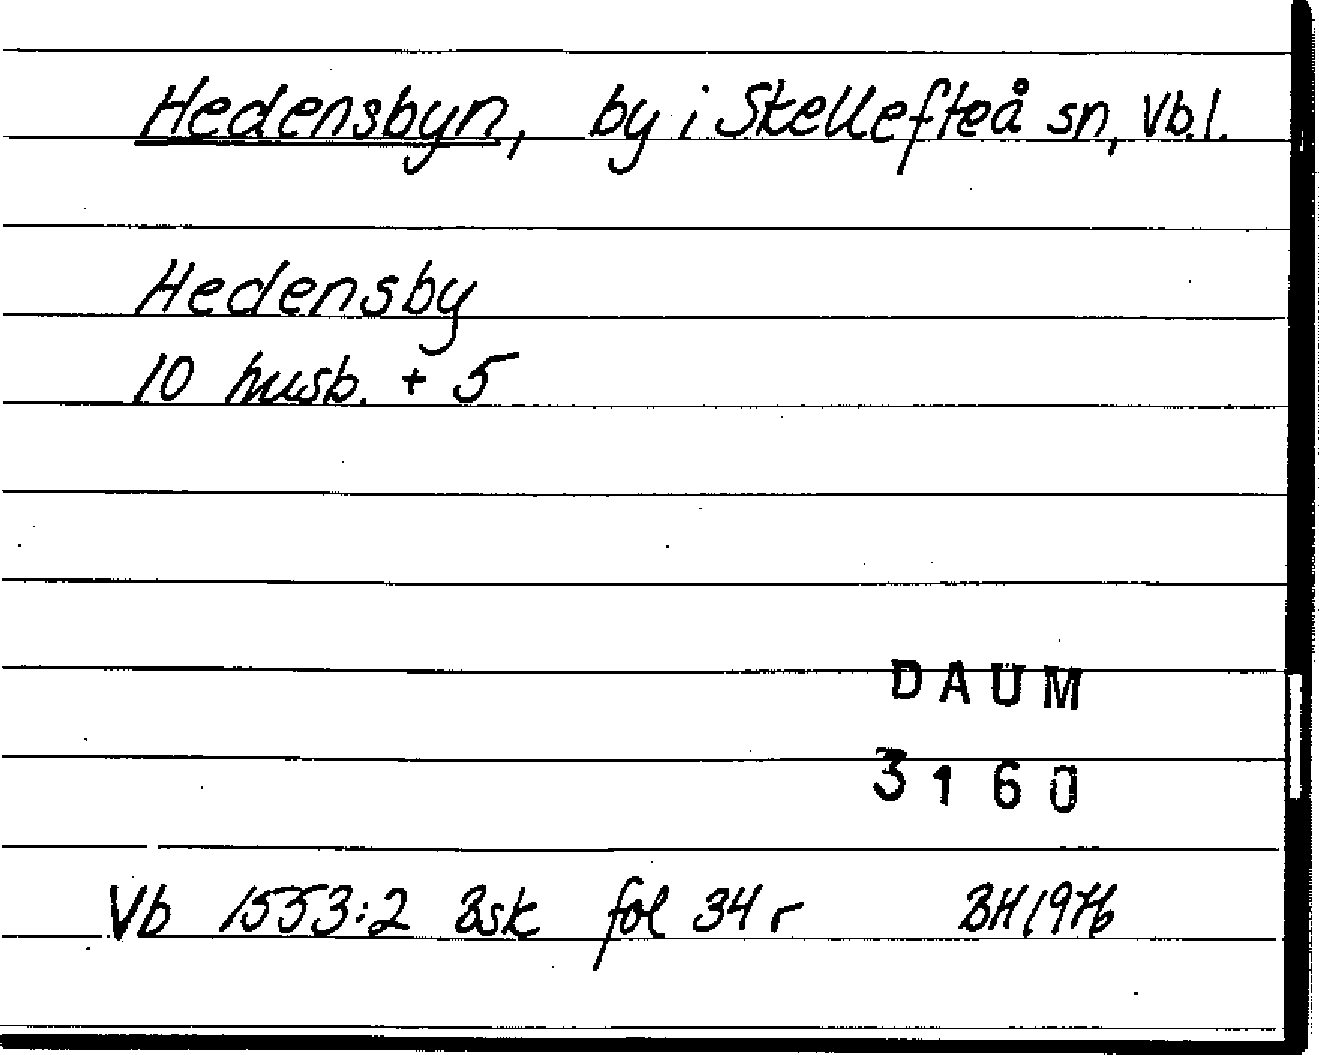 Hedensbyn, by i Skellefteå sn, Vb.l.
Hedensby
10 husb. + 5
DAUM
3160
Vb 1553:2 Bsk fol 34 r BH 1976